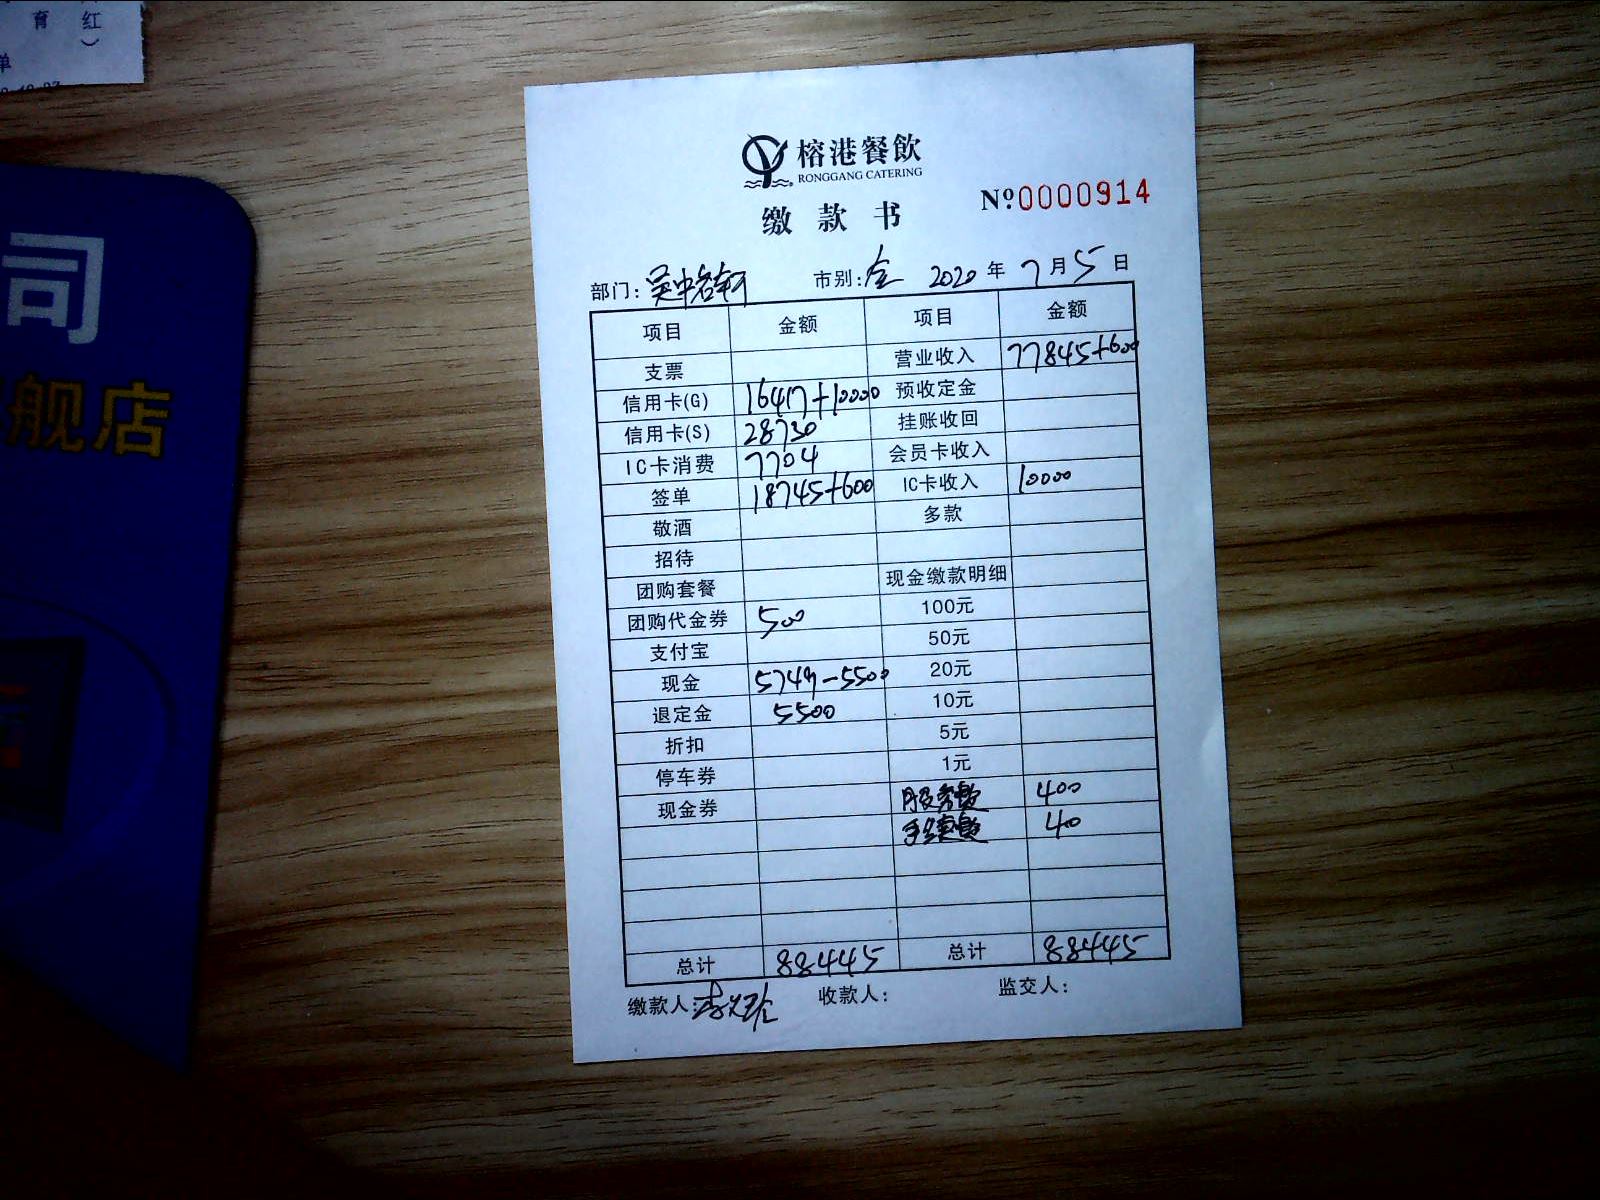 育 红
︶
单
司
舰店
榕港餐飲
RONGGANG CATERING
缴 款 书
Nº0000914
部门: 吴中 市别: 全 2020 年 7 月 5 日
项目 金额 项目 金额
支票 营业收入 77845+600
信用卡(G) 16417+10000 预收定金
信用卡(S) 28730 挂账收回
IC卡消费 7704 会员卡收入
签单 18745+600 IC卡收入 10000
敬酒 多款
招待
团购套餐 现金缴款明细
团购代金券 500 100元
支付宝 50元
现金 5749-5500 20元
退定金 5500 10元
折扣 5元
停车券 1元
现金券 服务费 400
手续费 40
总计 88445 总计 88445
缴款人: 收款人: 监交人: